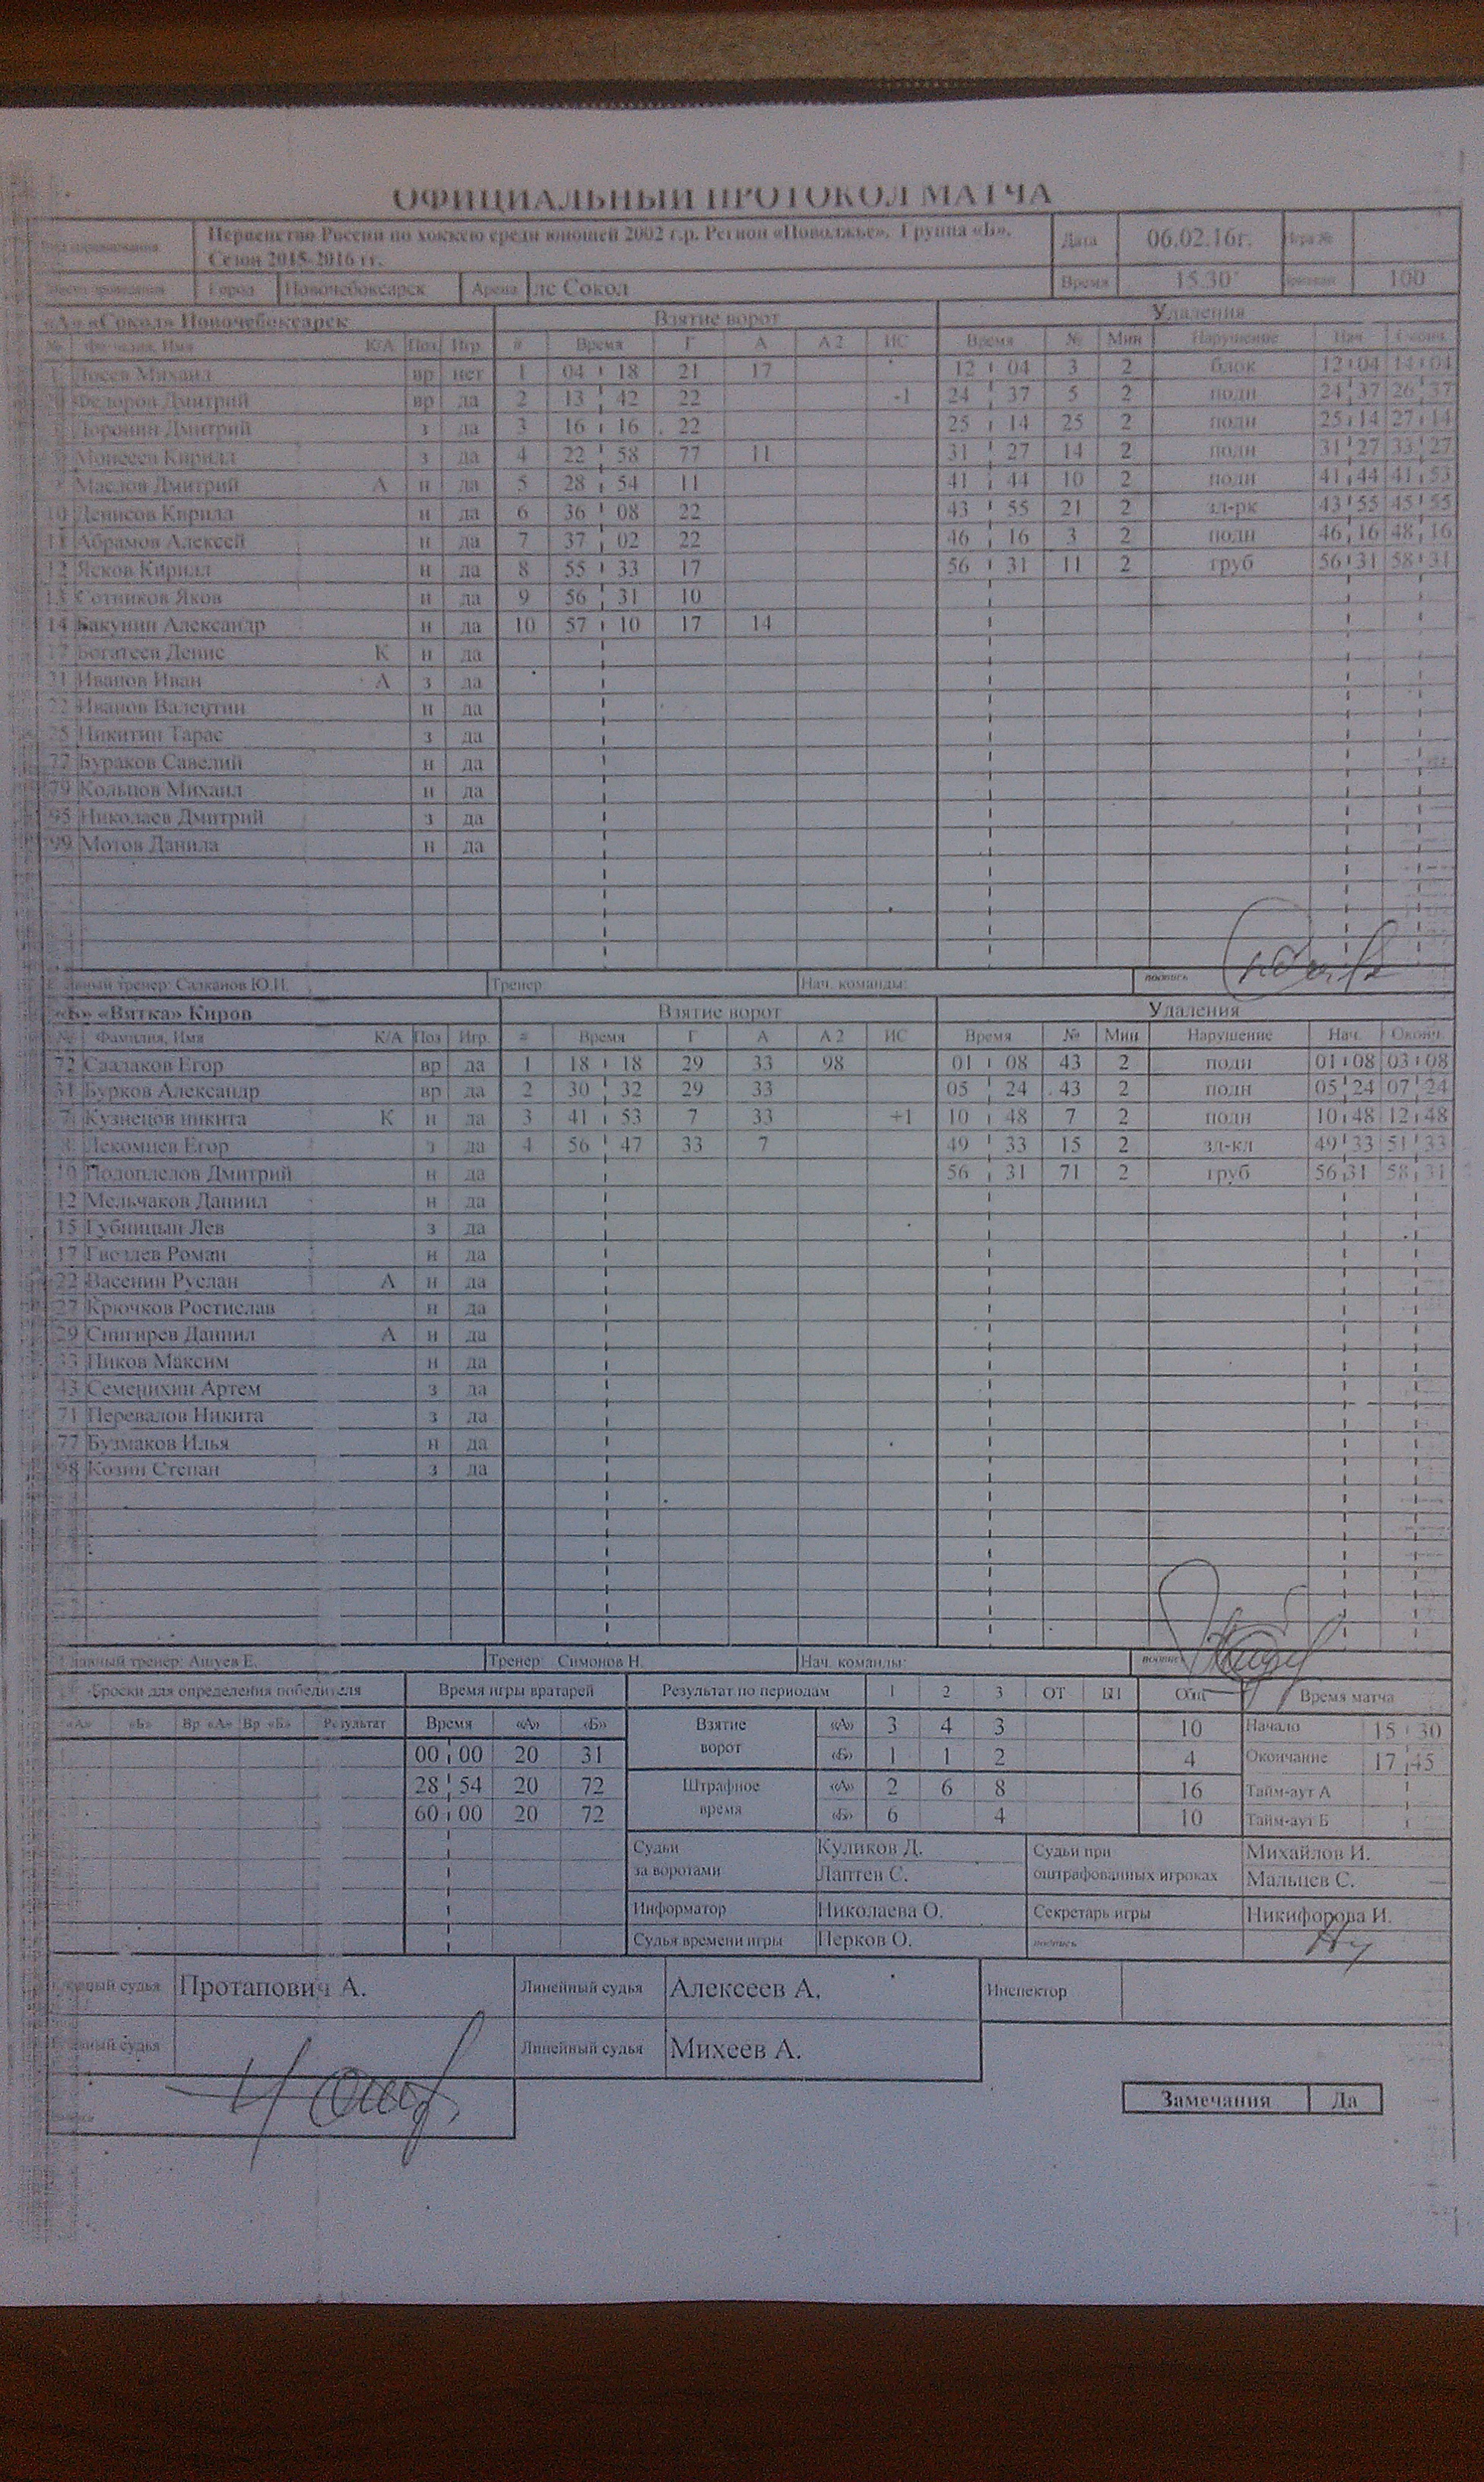 ОФИЦИАЛЬНЫЙ ПРОТОКОЛ МАТЧА
Первенство России по хоккею среди юношей 2002 г.р. Регион «Поволжье». Группа «Б». Дата 06.02.16г. Игра №
Сезон 2015-2016 гг.
Город Новочебоксарск Арена лс Сокол Время 15.30 100
«А» «Сокол» Новочебоксарск Взятие ворот Удаления
№ Фамилия, Имя К/А Поз Игр. # Время Г А А 2 ИС Время № Мин Нарушение Нач. Оконч.
Лосев Михаил вр нет 1 04 18 21 17 12 04 3 2 блок 12 04 14 04
Федоров Дмитрий вр да 2 13 42 22 -1 24 37 5 2 подн 24 37 26 37
Доронин Дмитрий з да 3 16 16 22 25 14 25 2 подн 25 14 27 14
Моисеев Кирилл з да 4 22 58 77 11 31 27 14 2 подн 31 27 33 27
Маслов Дмитрий А н да 5 28 54 11 41 44 10 2 подн 41 44 41 53
10 Денисов Кирилл н да 6 36 08 22 43 55 21 2 зд-рк 43 55 45 55
11 Абрамов Алексей н да 7 37 02 22 46 16 3 2 подн 46 16 48 16
12 Ясков Кирилл н да 8 55 33 17 56 31 11 2 груб 56 31 58 31
13 Сотников Яков н да 9 56 31 10
14 Бакунин Александр н да 10 57 10 17 14
17 Богатеев Денис К н да
21 Иванов Иван А з да
22 Иванов Валентин н да
25 Никитин Тарас з да
77 Бураков Савелий н да
79 Кольцов Михаил н да
95 Николаев Дмитрий з да
99 Мотов Данила н да
Главный тренер: Салканов Ю.И. Тренер Нач. команды: подпись
«Б» «Вятка» Киров Взятие ворот Удаления
№ Фамилия, Имя К/А Поз Игр. # Время Г А А 2 ИС Время № Мин Нарушение Нач. Оконч.
72 Садаков Егор вр да 1 18 18 29 33 98 01 08 43 2 подн 01 08 03 08
31 Бурков Александр вр да 2 30 32 29 33 05 24 43 2 подн 05 24 07 24
7 Кузнецов никита К н да 3 41 53 7 33 +1 10 48 7 2 подн 10 48 12 48
Лекомцев Егор з да 4 56 47 33 7 49 33 15 2 зд-кл 49 33 51 33
10 Подоплелов Дмитрий н да 56 31 71 2 груб 56 31 58 31
12 Мельчаков Даниил н да
15 Губницын Лев з да
17 Гвоздев Роман н да
22 Васенин Руслан А н да
27 Крючков Ростислав н да
29 Снигирев Даниил А н да
33 Пиков Максим н да
43 Семенихин Артем з да
71 Перевалов Никита з да
77 Бузмаков Илья н да
98 Козин Степан з да
Главный тренер: Ашуев Е. Тренер Симонов Н. Нач. команды: подпись
Броски для определения победителя Время игры вратарей Результат по периодам 1 2 3 ОТ Общ Время матча
«А» «Б» Вр «А» Вр «Б» Результат Время «А» «Б» Взятие ворот «А» 3 4 3 10 Начало 15 30
00 00 20 31 «Б» 1 1 2 4 Окончание 17 45
28 54 20 72 Штрафное время «А» 2 6 8 16 Тайм-аут А
60 00 20 72 «Б» 6 4 10 Тайм-аут Б
Судьи за воротами Куликов Д. Судьи при оштрафованных игроках Михайлов И.
Лаптев С. Мальцев С.
Информатор Николаева О. Секретарь игры Никифорова И.
Судья времени игры Перков О. подпись
Главный судья Протапович А. Линейный судья Алексеев А. Инспектор
Главный судья Линейный судья Михеев А.
Замечания Да